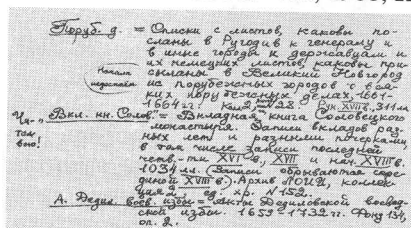 Поруб. д. = Списки с листов, каковы по-
сланы в Ругодив к генералу и
в иные города к державцам и
их немецких листов, каковы при-
сыланы в Великий Новгород
из порубежных городов о вся-
ких порубежных делах. 1661-
1664 гг. Кол. 2, № 28. Рук. XVII в., 311 лл.
Начала
Вкл. кн. Солов. = Вкладная книга Соловецкого
монастыря. Записи вкладов раз-
ных лет и разными почерками
в том числе записи последней
четв-ти XVI в., XVII и нач. XVIII в.
1034 лл. (Записи обрываются сере-
диной XVIII в.). Архив ЛОИИ, коллек-
ция 2, ед. хр. № 152.
А. Дедил. воев. избы = Акты Дедиловской воевод-
ской избы. 1659-1732 гг. Фонд 134,
оп. 2.